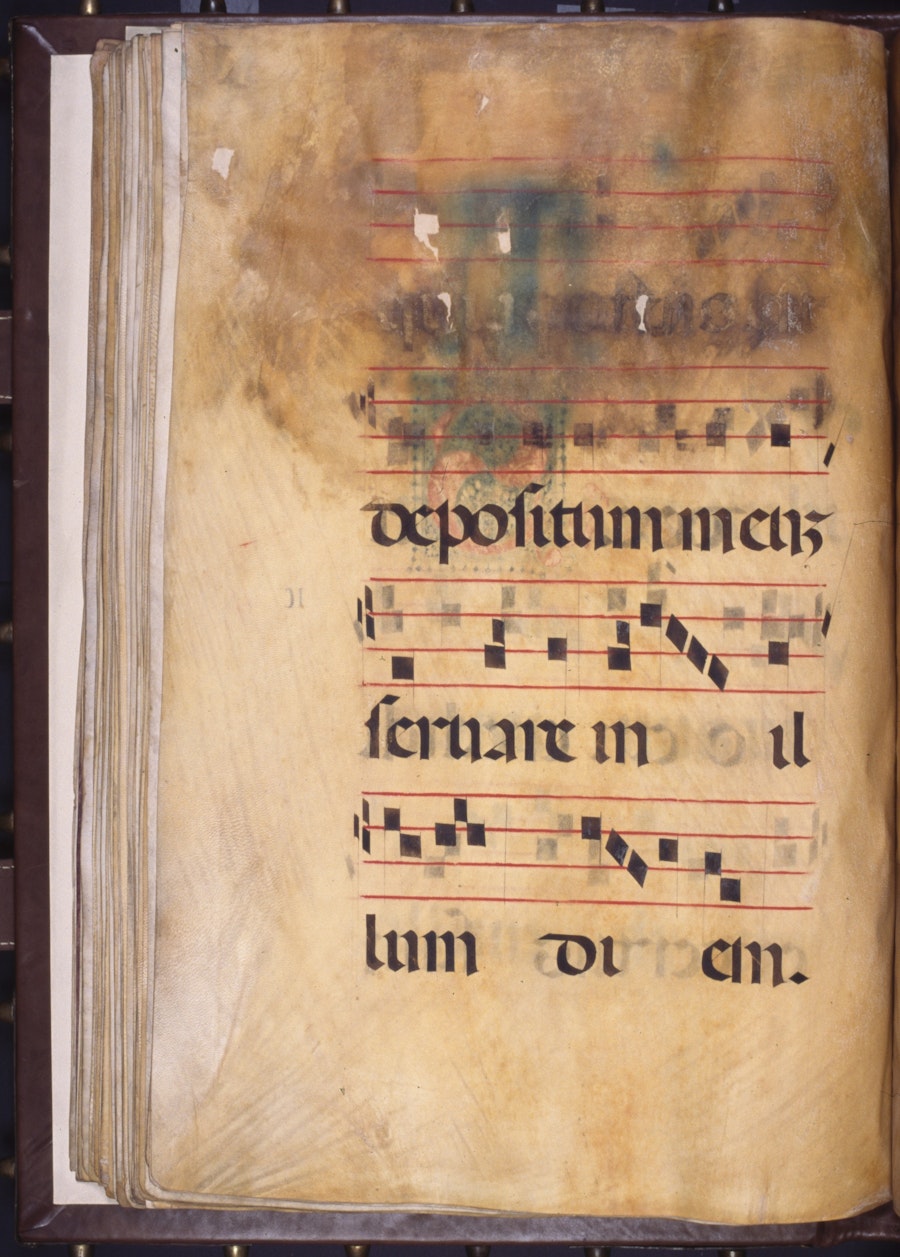 depositum meuz
seruare in il
lum di em.